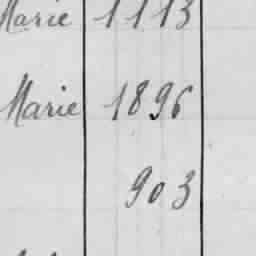 Marie 1113
Marie 1896
903